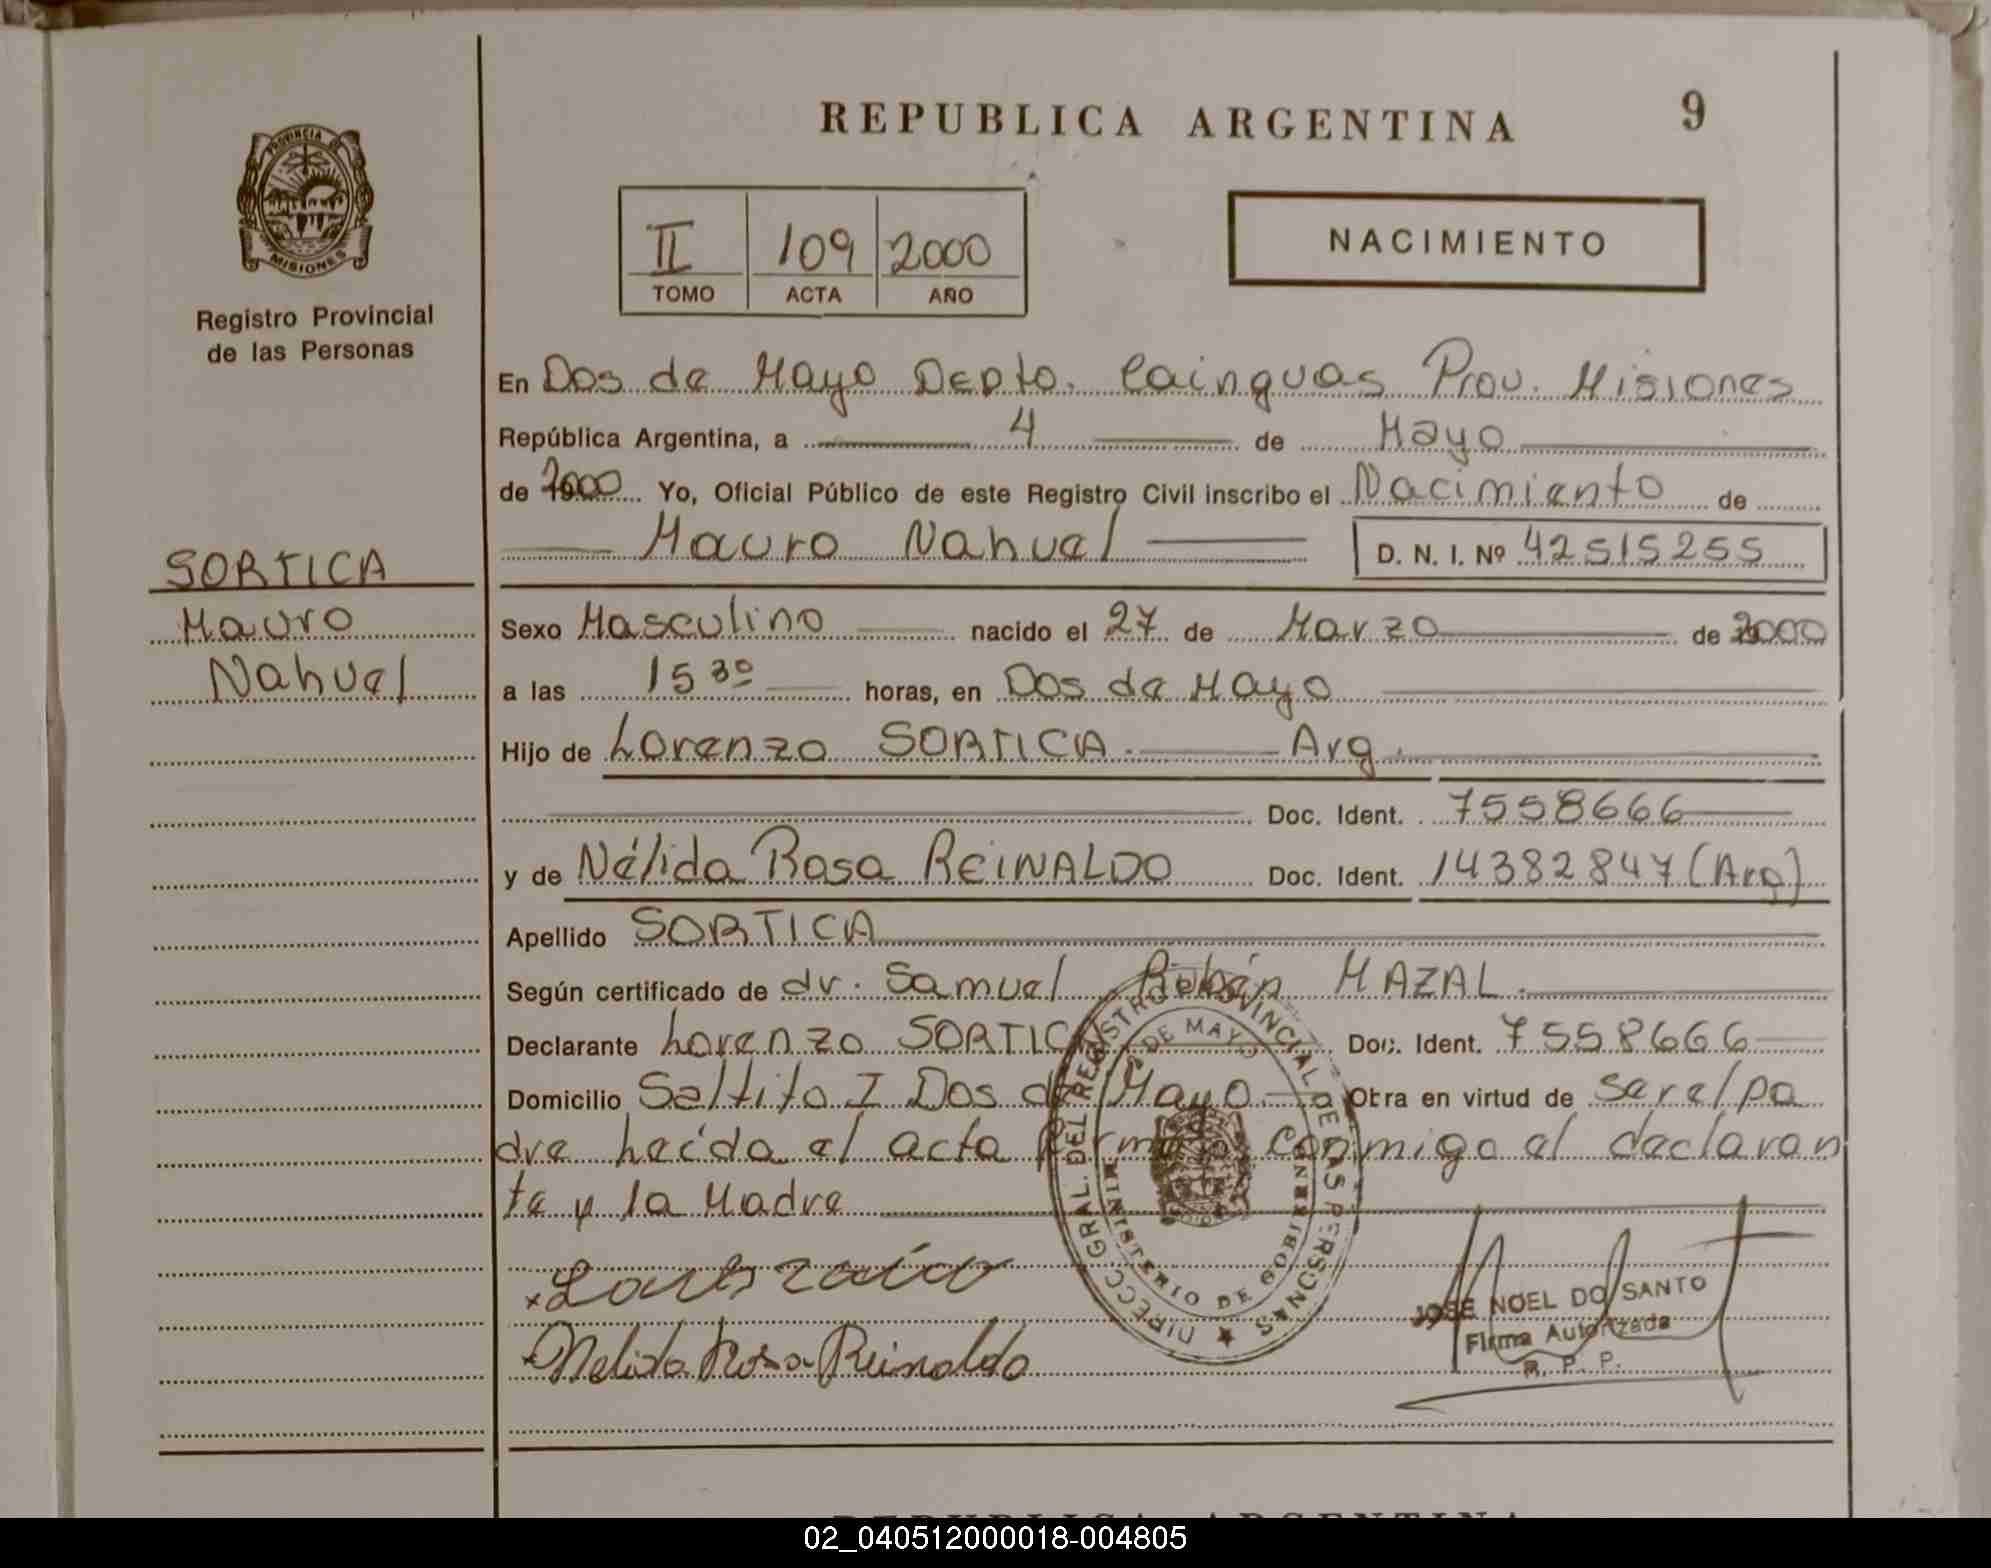 REPUBLICA ARGENTINA
9
PROVINCIA
MISIONES
Registro Provincial
de las Personas
II 109 2000
TOMO ACTA AÑO
NACIMIENTO
En Dos de Mayo Depto. Cainguas Prov. Misiones
República Argentina, a 4 de Mayo
de 2000 Yo, Oficial Público de este Registro Civil inscribo el Nacimiento de
Mauro Nahuel D. N. I. Nº 42515255
SORTICA
Mauro
Nahuel
Sexo Masculino nacido el 27 de Marzo de 2000
a las 15 30 horas, en Dos de Mayo
Hijo de Lorenzo SORTICA. Arg.
Doc. Ident. 7558666
y de Nélida Rosa REINALDO Doc. Ident. 14382847 (Arg)
Apellido SORTICA
Según certificado de dr. Samuel Rubén MAZAL.
Declarante Lorenzo SORTICA Doc. Ident. 7558666
Domicilio Saltito I Dos de Mayo. Obra en virtud de ser el pa
dre Leída el acta firman conmigo el declaran
te y la Madre
DIRECC. GRAL. DEL REGISTRO PROVINCIAL DE LAS PERSONAS
2 DE MAYO
MINISTERIO DE GOBIERNO
x Nelida Rosa Reinaldo
JOSE NOEL DO SANTO
Firma Autorizada
R. P. P.
REPUBLICA ARGENTINA
02_040512000018-004805